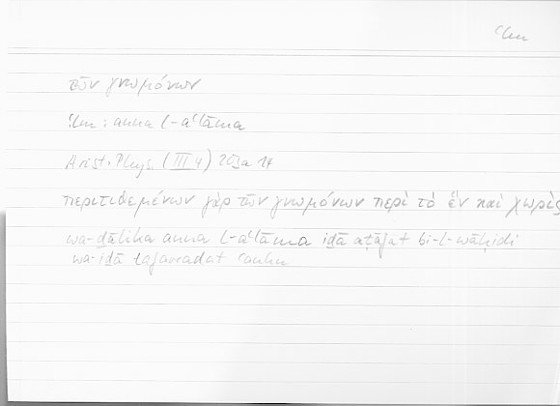 ʿlm
τῶν γνωμόνων
ʿlm : anna l-aʿlāma
Arist. Phys. (III 4) 203a 14
περιτιθεμένων γὰρ τῶν γνωμόνων περὶ τὸ ἓν καὶ χωρίς
wa-ḏālika anna l-aʿlāma iḏā aṭāfat bi-l-wāḥidi
wa-iḏā taǧarradat ʿanhu